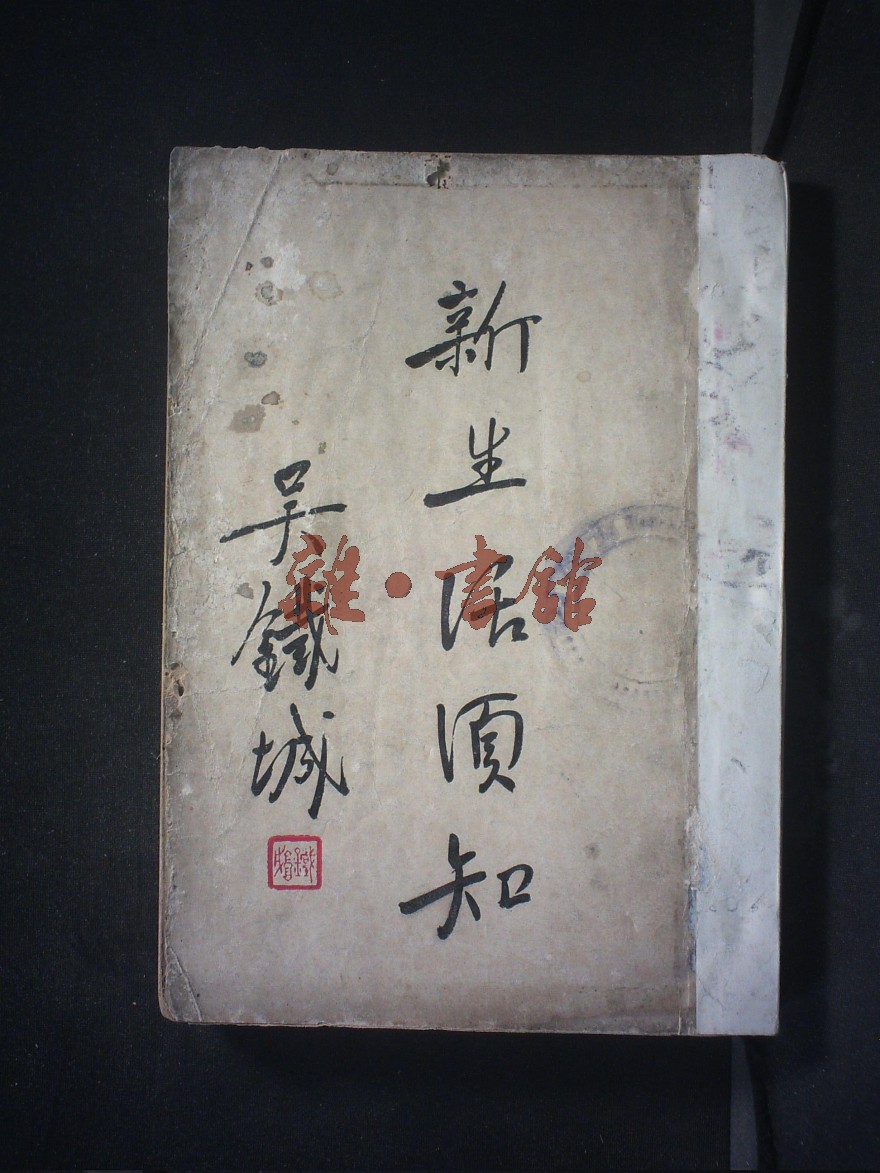 新生活須知
吳鐵城
鐵城
雜·書館